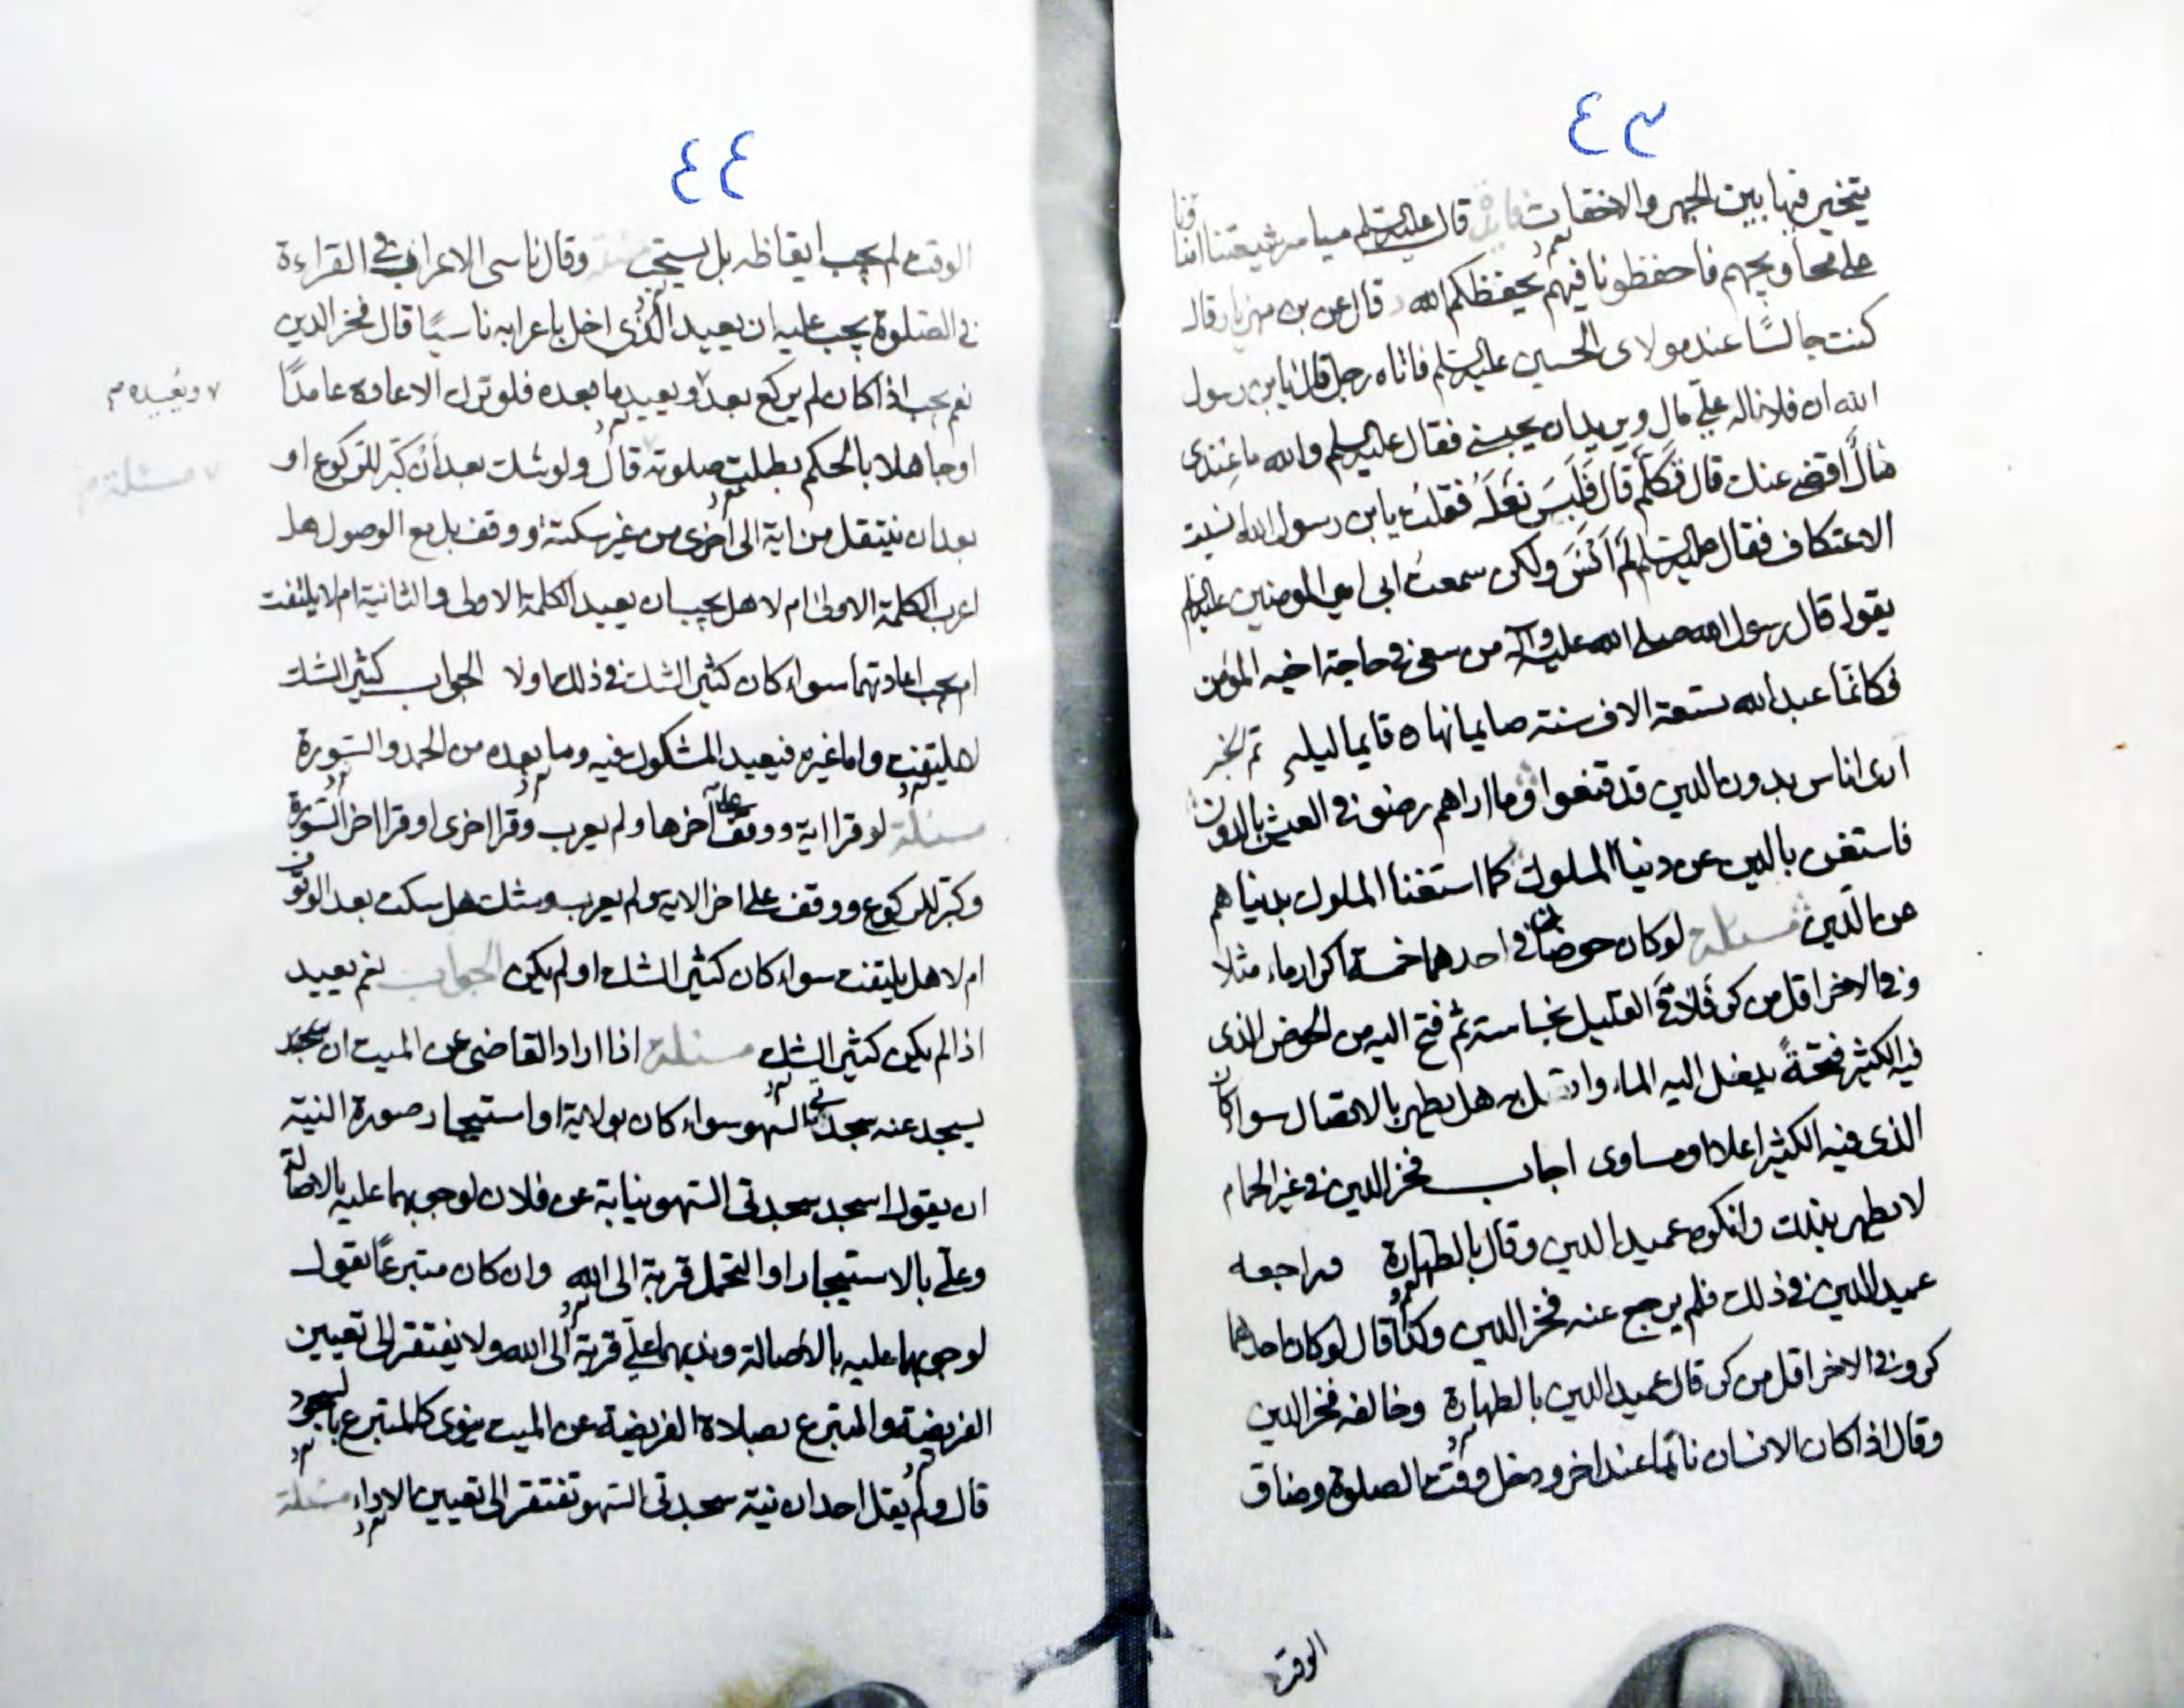 ٤٣
يتخير فيها بين الجهر والاخفات فايدة قال عليه السلم مياسر شيعتنا امنا
على محاويجهم فاحفظونا فيهم يحفظكم الله قال بن مهزيار قال
كنت جالسًا عند مولاى الحسين عليه السلم فاتاه رجل قال يا بن رسول
الله ان فلانا له علي مال ويريد ان يحبسني فقال عليه السلم والله ما عندى
مال اقضى عنك قال فكلّم قال فلبَسَ نعله فقلت يا بن رسول الله انسيت
الاعتكاف فقال عليه السلم لم اَنسَ ولكن سمعت ابى امير المومنين عليه السلم
يقول قال رسول الله صلى الله عليه وآله من سعى فى حاجة اخيه المؤمن
فكانما عبد الله تسعة الاف سنة صايما نهاره قايما ليله تم الخبر
ارى اناس بدون الدين قد قنعوا وما اراهم رضوا فى العيش بالدون
فاستغن بالدين عن دنيا الملوك كما استغنا الملوك بدنياهم
عن الدّين مسئلة لو كان حوضان فى احدهما خمسة اكرار ماء مثلا
وفى الاخر اقل من كر فلاقى القليل نجاسة ثم فتح اليه من الحوض الذى
فيه الكثير فتحةً يدخل اليه الماء هل يطهر بالاتصال سواء كان
الذى فيه الكثير اعلا او مساوى اجاب فخر الدين فى غير الحمام
لا يطهر بذلك وانكره عميد الدين وقال بالطهارة وراجعه
عميد الدين فى ذلك فلم يرجع عنه فخر الدين وكذا قال لو كان احدهما
كر وفى الاخر اقل من كر قال عميد الدين بالطهارة وخالفه فخر الدين
وقال اذا كان الانسان نائما عند اخر ودخل وقت الصلوة وضاق
الوقت
٤٤
الوقت لم يجب ايقاظه بل يستحب وقال ناسى الاعراب فى القراءة
فى الصلوة يجب عليه ان يعيد الذى اخل باعرابه ناسيًا قال فخر الدين
نعم يجب اذا كان لم يركع بعد ويعيد ما بعده فلو ترك الاعادة عامدًا
ويعيده
او جاهلا بالحكم بطلت صلوته قال ولو شك بعد ان كبّر للركوع او
مسئلة
بعد ان ينتقل من اية الى اخرى من غير سكتة او وقف بل مع الوصول هل
اعرب الكلمة الاولى ام لا هل يجب ان يعيد الكلمة الاولى والثانية ام لا يلتفت
ام يجب اعادتهما سواء كان كثير الشك فى ذلك او لا الجواب كثير الشك
لا يلتفت واما غيره فيعيد المشكوك فيه وما بعده من الحمد والسّورة
مسئلة لو قرا اية ووقف على آخرها ولم يعرب وقرا اخرى او قرا اخر السّورة
وكبّر للركوع ووقف على اخر الاية ولم يعرب وشك هل سكت بعد الوقوف
ام لا هل يلتفت سواء كان كثير الشك او لم يكن الجواب نعم يعيد
اذا لم يكن كثير الشك مسئلة اذا اراد القاضى عن الميت ان يسجد
يسجد عنه سجدتى السهو سواء كان بولاية او استيجار صورة النية
ان يقول اسجد سجدتى السّهو نيابة عن فلان لوجوبهما عليه بالاصالة
وعلىّ بالاستيجار او التحمل قربة الى الله وان كان متبرعًا يقول
لوجوبهما عليه بالاصالة وندبهما علىّ قربة الى الله ولا يفتقر الى تعيين
الفريضة والمتبرع بصلاة الفريضة عن الميت ينوى كالمتبرع بالسجود
قال ولم يقل احد ان نية سجدتى السّهو تفتقر الى تعيين الاداء مسئلة